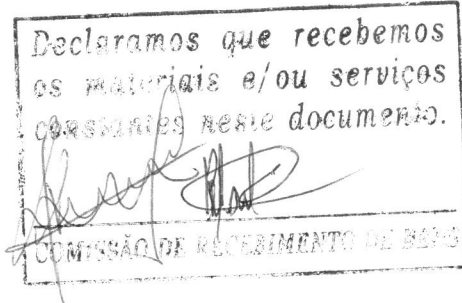 Declaramos que recebemos
os materiais e/ou serviços
constantes neste documento.
COMISSÃO DE RECEBIMENTO DE BENS